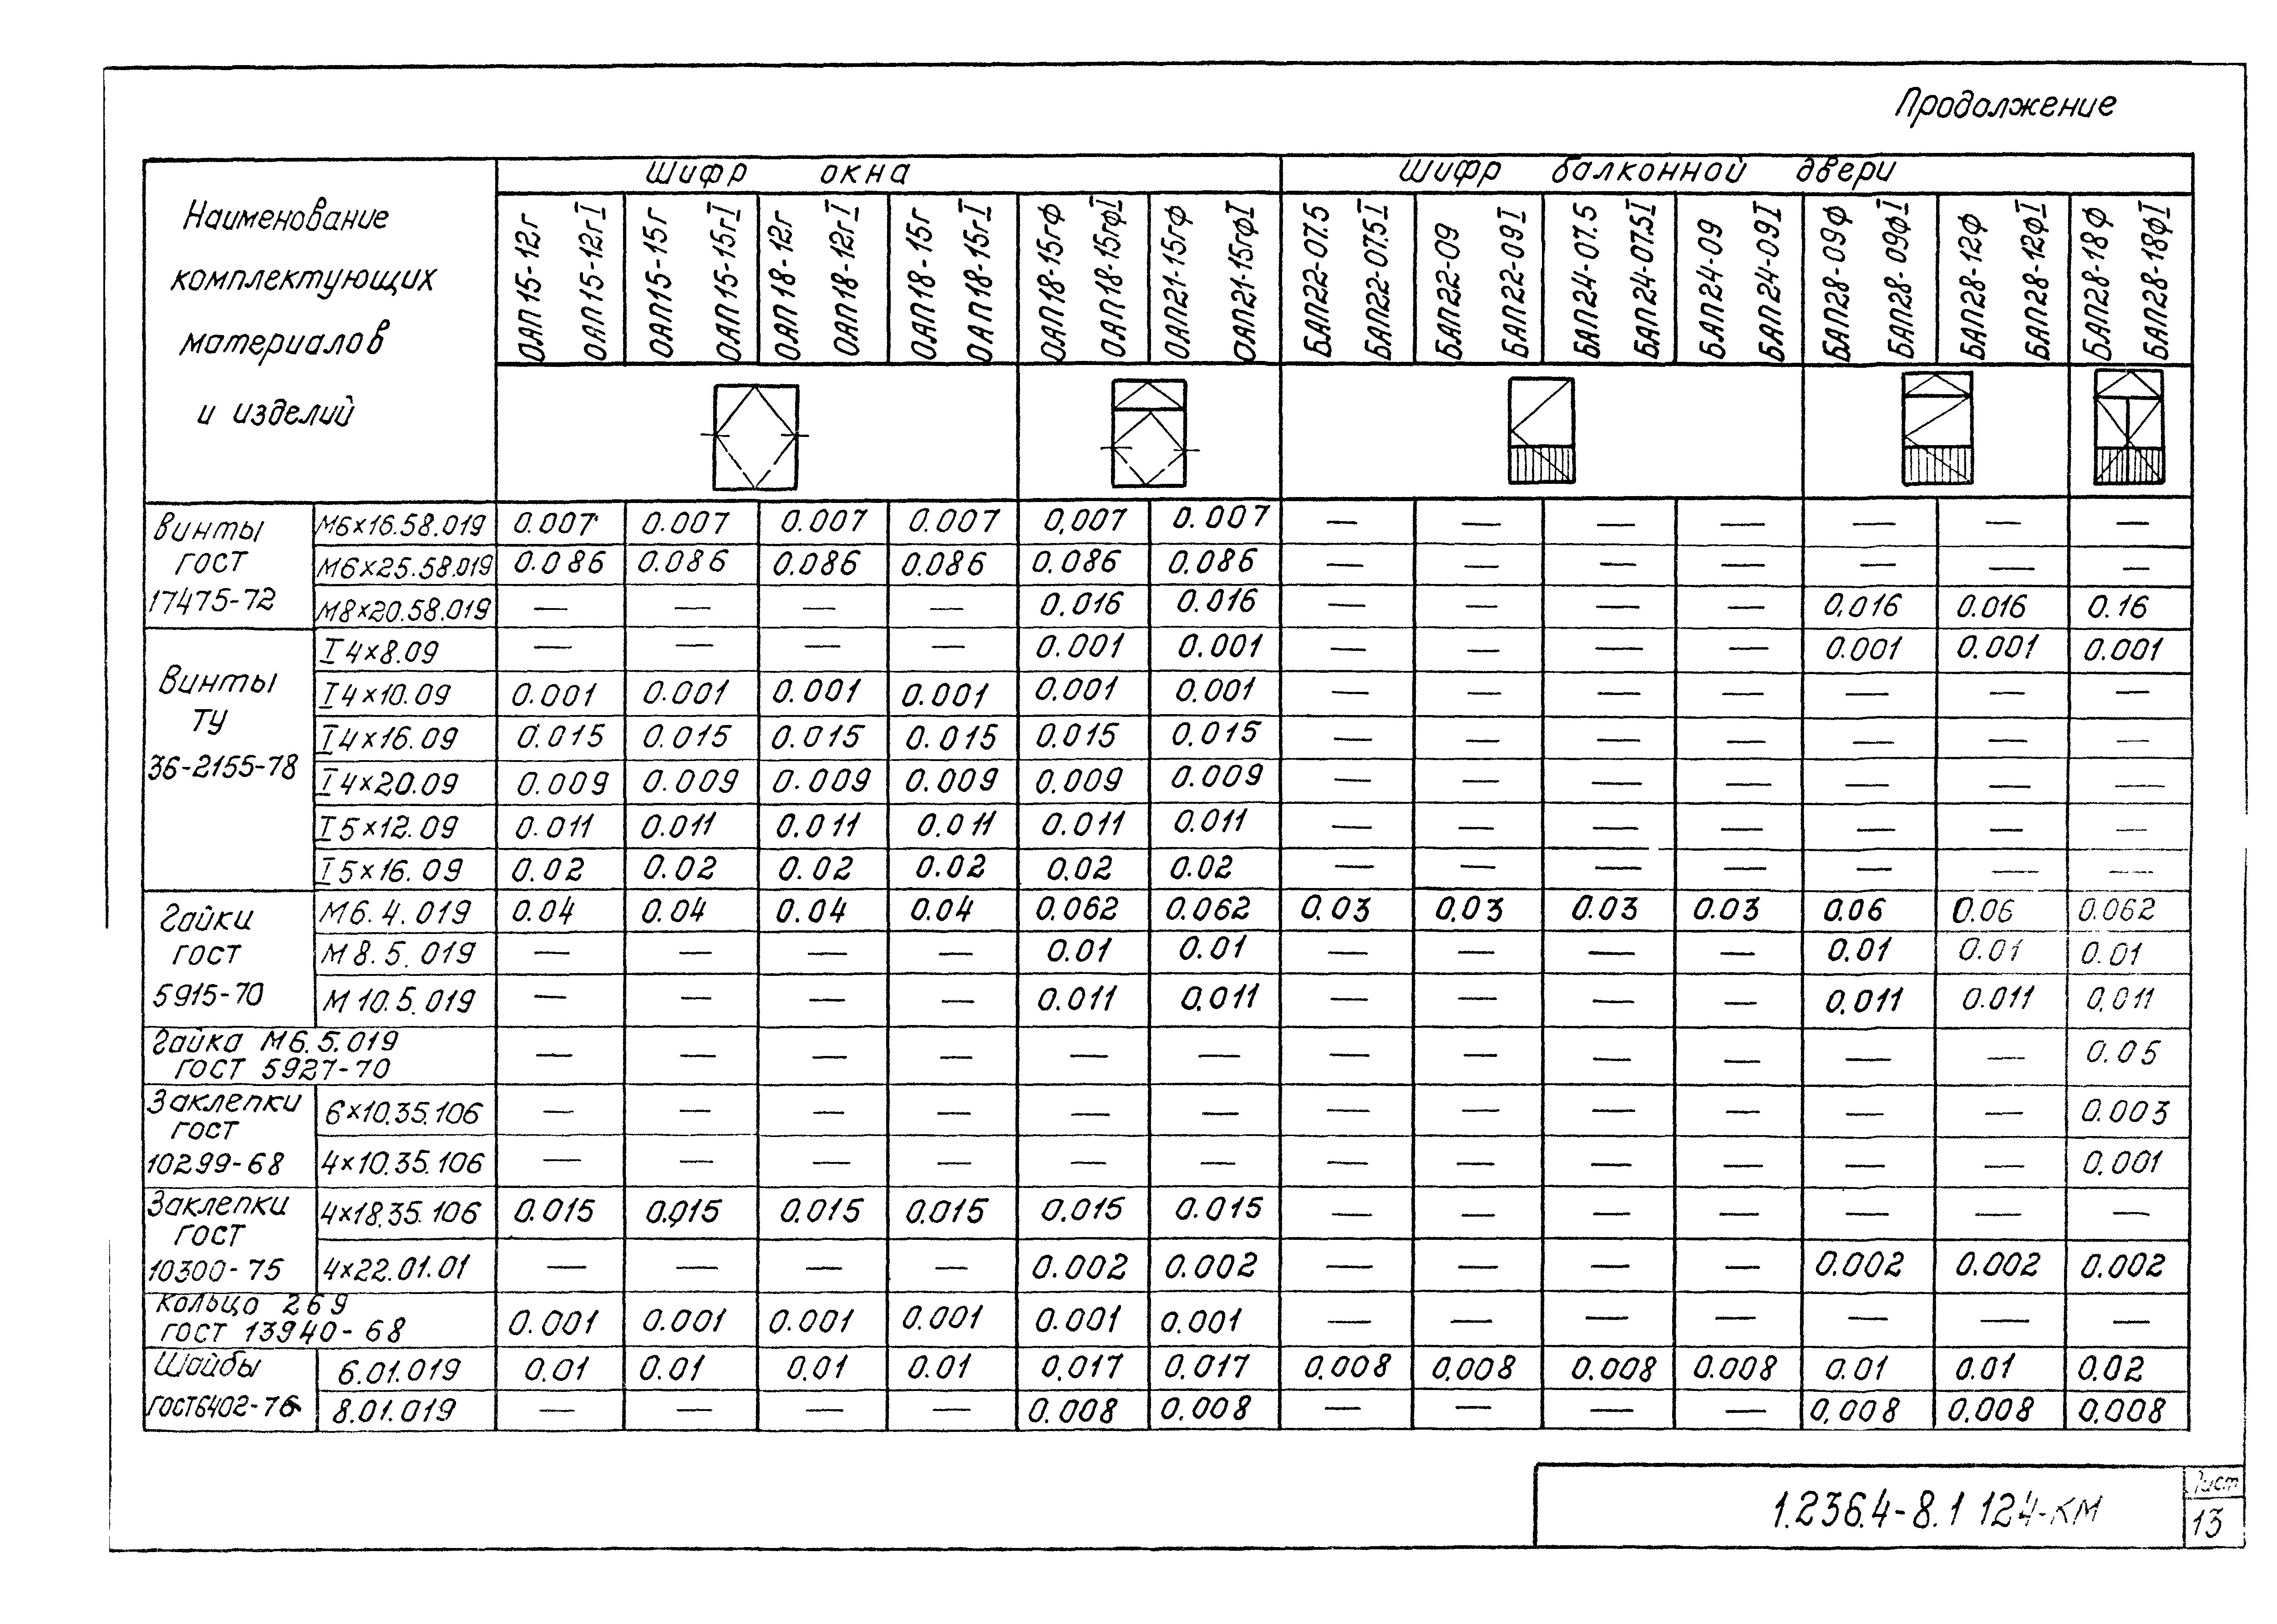 Продолжение
Наименование комплектующих материалов и изделий | Шифр окна | Шифр балконной двери
ОАП15-12г ОАП15-12гI | ОАП15-15г ОАП15-15гI | ОАП18-12г ОАП18-12гI | ОАП18-15г ОАП18-15гI | ОАП18-15гФ ОАП18-15гфI | ОАП21-15гФ ОАП21-15гфI | БАП22-07.5 БАП22-07.5I | БАП22-09 БАП22-09I | БАП24-07.5 БАП24-07.5I | БАП24-09 БАП24-09I | БАП28-09Ф БАП28-09фI | БАП28-12Ф БАП28-12фI | БАП28-18Ф БАП28-18фI
Винты ГОСТ 17475-72
М6×16.58.019 0.007 0.007 0.007 0.007 0,007 0.007 — — — — — — —
М6×25.58.019 0.086 0.086 0.086 0.086 0.086 0.086 — — — — — — —
М8×20.58.019 — — — — 0.016 0.016 — — — — 0,016 0.016 0.16
Винты ТУ 36-2155-78
I 4×8.09 — — — — 0.001 0.001 — — — — 0.001 0.001 0.001
I 4×10.09 0.001 0.001 0.001 0.001 0.001 0.001 — — — — — — —
I 4×16.09 0.015 0.015 0.015 0.015 0.015 0.015 — — — — — — —
I 4×20.09 0.009 0.009 0.009 0.009 0.009 0.009 — — — — — — —
I 5×12.09 0.011 0.011 0.011 0.011 0.011 0.011 — — — — — — —
I 5×16.09 0.02 0.02 0.02 0.02 0.02 0.02 — — — — — — —
Гайки ГОСТ 5915-70
М6.4.019 0.04 0.04 0.04 0.04 0.062 0.062 0.03 0,03 0.03 0.03 0.06 0.06 0.062
М8.5.019 — — — — 0.01 0.01 — — — — 0.01 0.01 0.01
М10.5.019 — — — — 0.011 0,011 — — — — 0,011 0.011 0,011
Гайка М6.5.019
ГОСТ 5927-70 — — — — — — — — — — — — 0.05
Заклепки ГОСТ 10299-68
6×10.35.106 — — — — — — — — — — — — 0.003
4×10.35.106 — — — — — — — — — — — — 0.001
Заклепки ГОСТ 10300-75
4×18.35.106 0.015 0.015 0.015 0.015 0.015 0.015 — — — — — — —
4×22.01.01 — — — — 0.002 0.002 — — — — 0.002 0.002 0.002
Кольцо 269
ГОСТ 13940-68 0.001 0.001 0.001 0.001 0.001 0.001 — — — — — — —
Шайбы ГОСТ6402-76
6.01.019 0.01 0.01 0.01 0.01 0,017 0.017 0.008 0,008 0.008 0.008 0.01 0.01 0.02
8.01.019 — — — — 0.008 0.008 — — — — 0,008 0.008 0,008
1.236.4-8.1 124-КМ
Лист
13